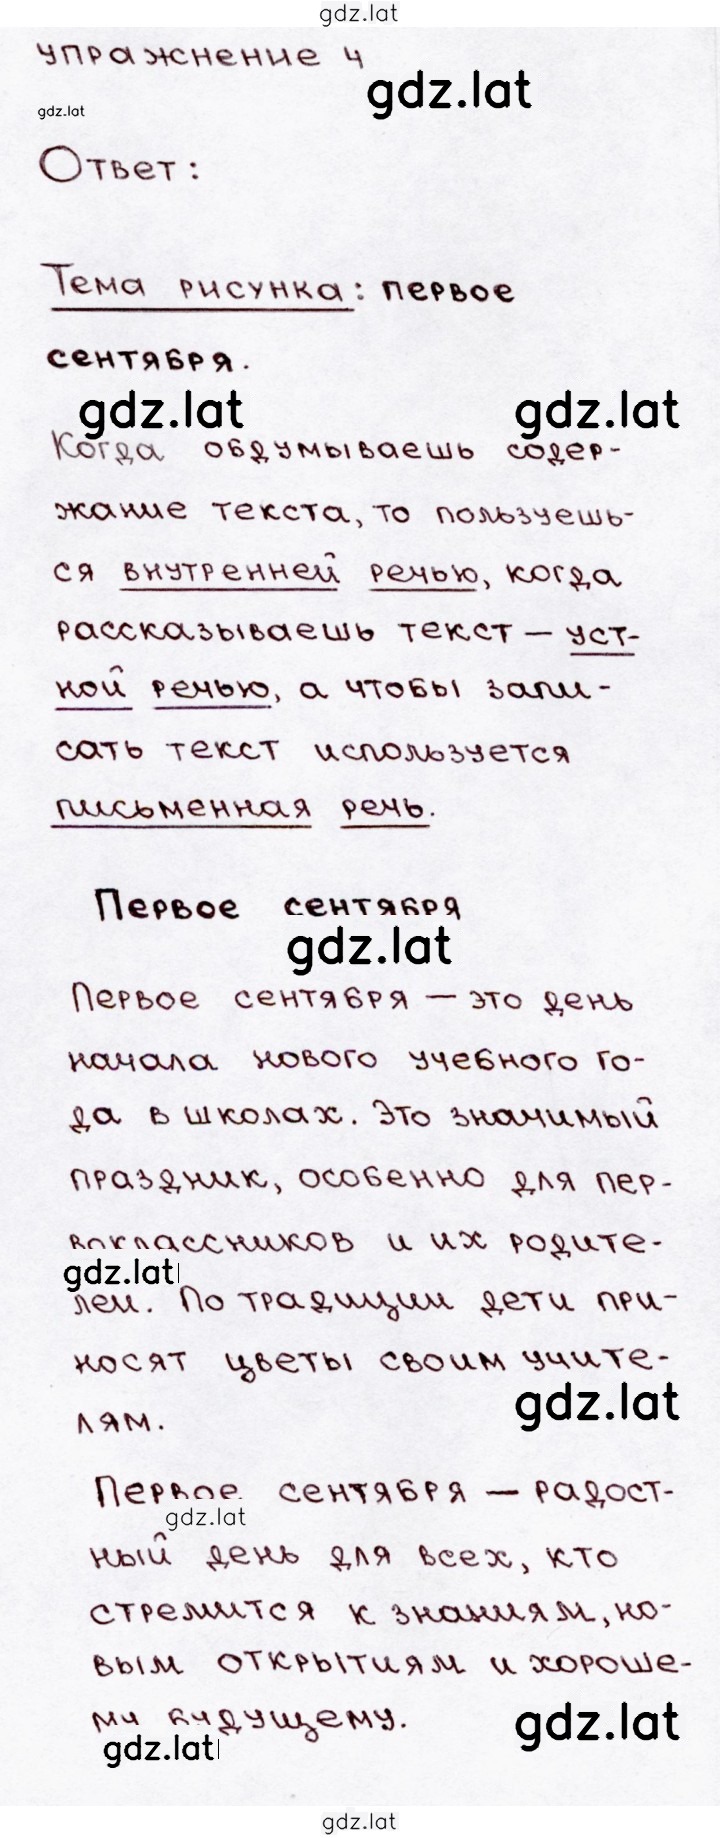 gdz.lat
упражнение 4
gdz.lat
gdz.lat
Ответ:
Тема рисунка: первое
сентября.
gdz.lat gdz.lat
Когда обдумываешь содер-
жание текста, то пользуешь-
ся внутренней речью, когда
рассказываешь текст – уст-
ной речью, а чтобы запи-
сать текст используется
письменная речь.
Первое сентября
gdz.lat
Первое сентября – это день
начала нового учебного го-
да в школах. Это значимый
праздник, особенно для пер-
воклассников и их родите-
gdz.lat
лей. По традиции дети при-
носят цветы своим учите-
gdz.lat
лям.
Первое сентября – радост-
gdz.lat
ный день для всех, кто
стремится к знаниям, но-
вым открытиям и хороше-
му будущему.
gdz.lat
gdz.lat
gdz.lat